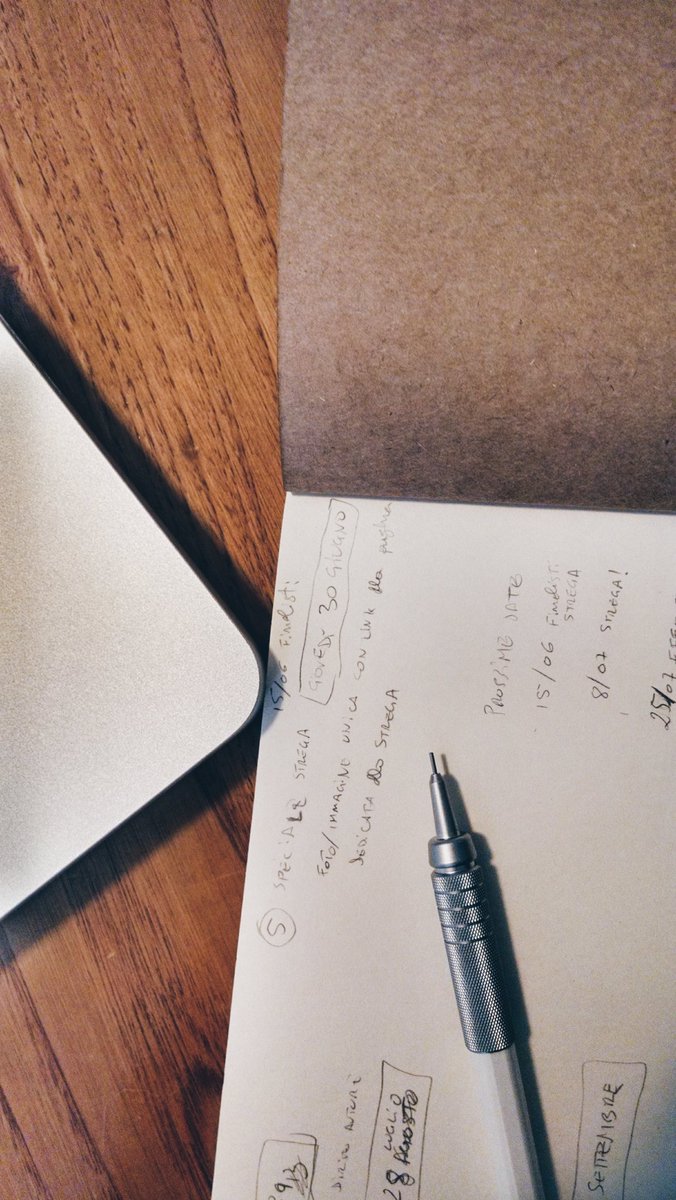 15/06 Finalisti
⑤ SPECIALE STREGA
GIOVEDÌ 30 GIUGNO
FOTO/IMMAGINE UNICA CON LINK alla pagina
DEDICATA allo STREGA
PROSSIME DATE
15/06 Finalisti
STREGA
8/07 STREGA!
25/07
DIRITTI AUTORE
28 LUGLIO
AGOSTO
SETTEMBRE